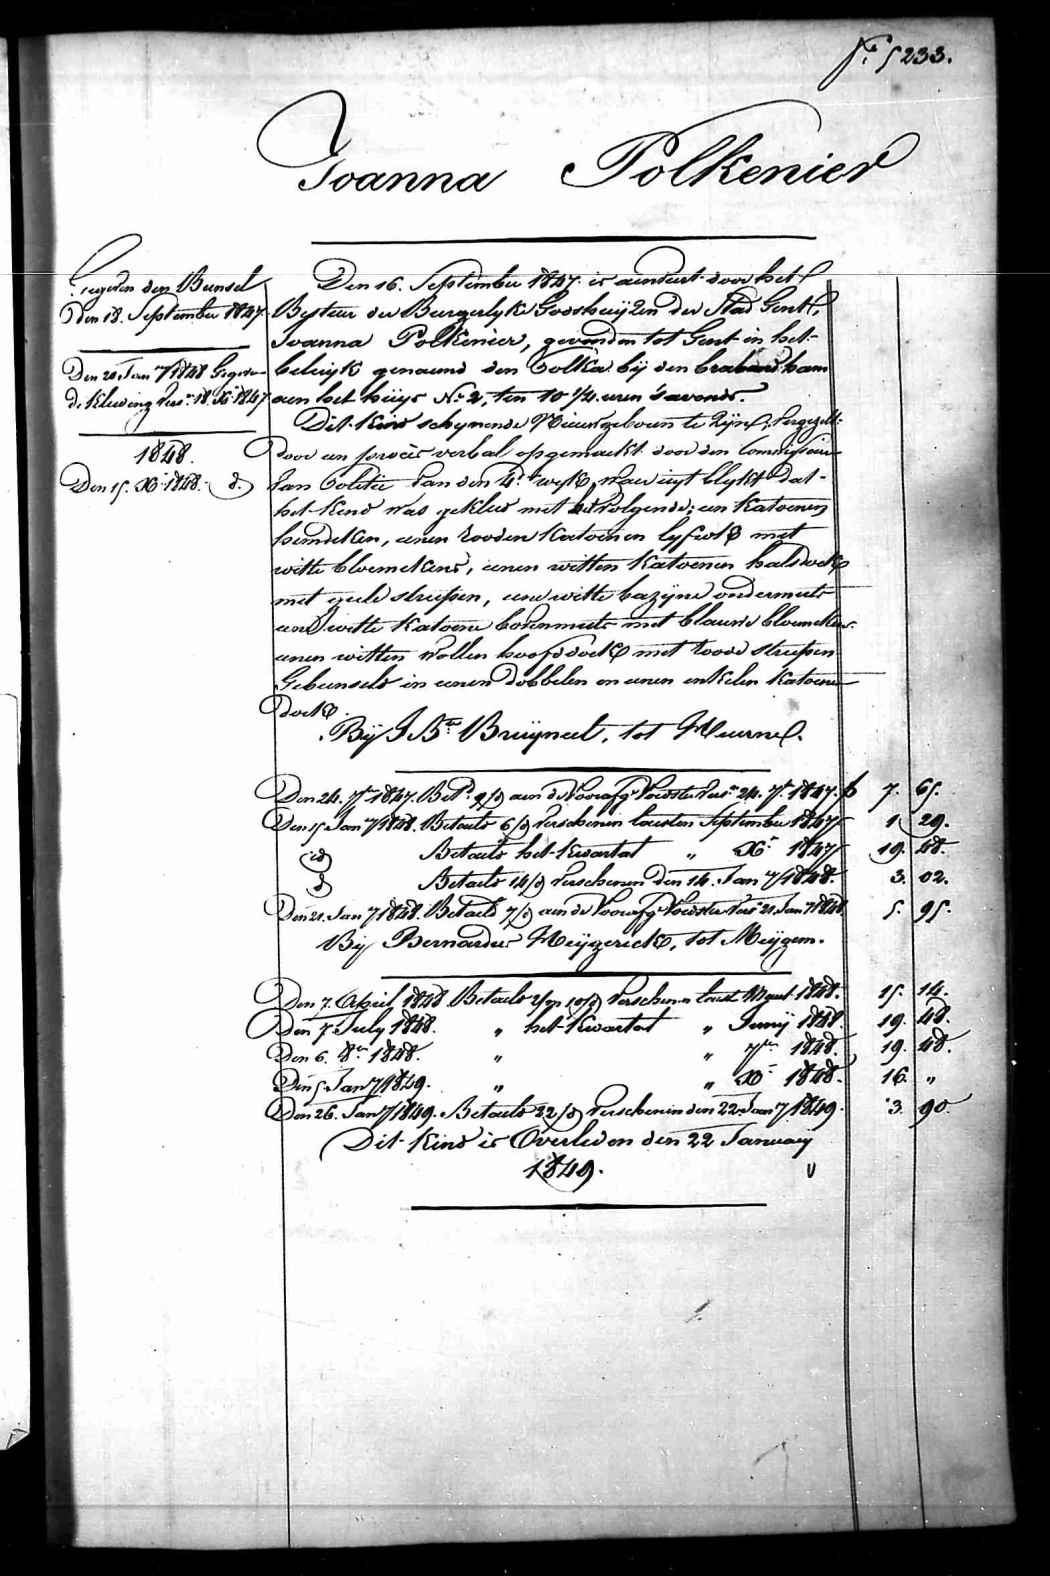 Nº 5233.
Joanna Polkenier
Gegeven den Bunsel
Den 18. September 1847.
Den 20 Jan 7/1848 Gegeven
de Kleeding vers. 18. Xr 1847
1848.
Den 15. Xr 1848. d.
Den 16. September 1847. is aenveert door het
Bestuer der Burgerlyke Godshuijzen der Stad Gent,
Joanna Polkenier, gevonden tot Gent in het
beluijk genaemd den Polka bij den brabandham
aen het huijs Nº 2, ten 10 1/4 uren s'avonds.
Dit Kind schynende Nieuwgeboren te zijn, vergezelt
door een procès verbal opgemaekt door den Commissaris
van Politie van den 4de wyk, waer uyt blykt dat
het Kind was gekleed met het volgende; een Katoenen
hemdeken, eenen rooden Katoenen lyfrok met
witte bloemekens, eenen witten Katoenen halsdoek
met geele streepen, eene witte bazijne ondermuts
eene witte Katoene bovenmuts met blauwe bloemekens
eenen witten wollen hoofddoek met roode streepen
Gebunseld in eenen dobbelen en eenen enkelen Katoenen
doek
Bij J. Bte Bruijneel, tot Heurne.
Den 24. 7br 1847. Betd. 9/d aen de Voorafge Voedster vers. 24. 7br 1847. f 7. 65.
Den 15 Jan 7/1848. Betaeld 6/d verschenen laesten September 1847 1 29.
id Betaeld het Kwartal „ Xr 1847 19. 48.
d Betaeld 14/d verschenen den 14. Jan 7/1848. 3. 02.
Den 21. Jan 7 1848. Betaeld 7/d aen de Voorafge Voedster vers. 21 Jan 7 1848 5. 95.
Bij Bernardus Heijzerick, tot Meijgem.
Den 7. April 1848 Betaeld 2/m 10/d verschenen laest Maert 1848. 15. 14.
Den 7 July 1848. „ het Kwartal „ Junij 1848. 19. 48.
Den 6. 8br 1848. „ „ 7br 1848. 19. 48.
Den 5 Jan 7/1849. „ „ Xr 1848. 16. „
Den 26. Jan 7/1849. Betaeld 22/d verschenen den 22 Jan 7/1849. 3. 90.
Dit Kind is Overleden den 22 January
1849.